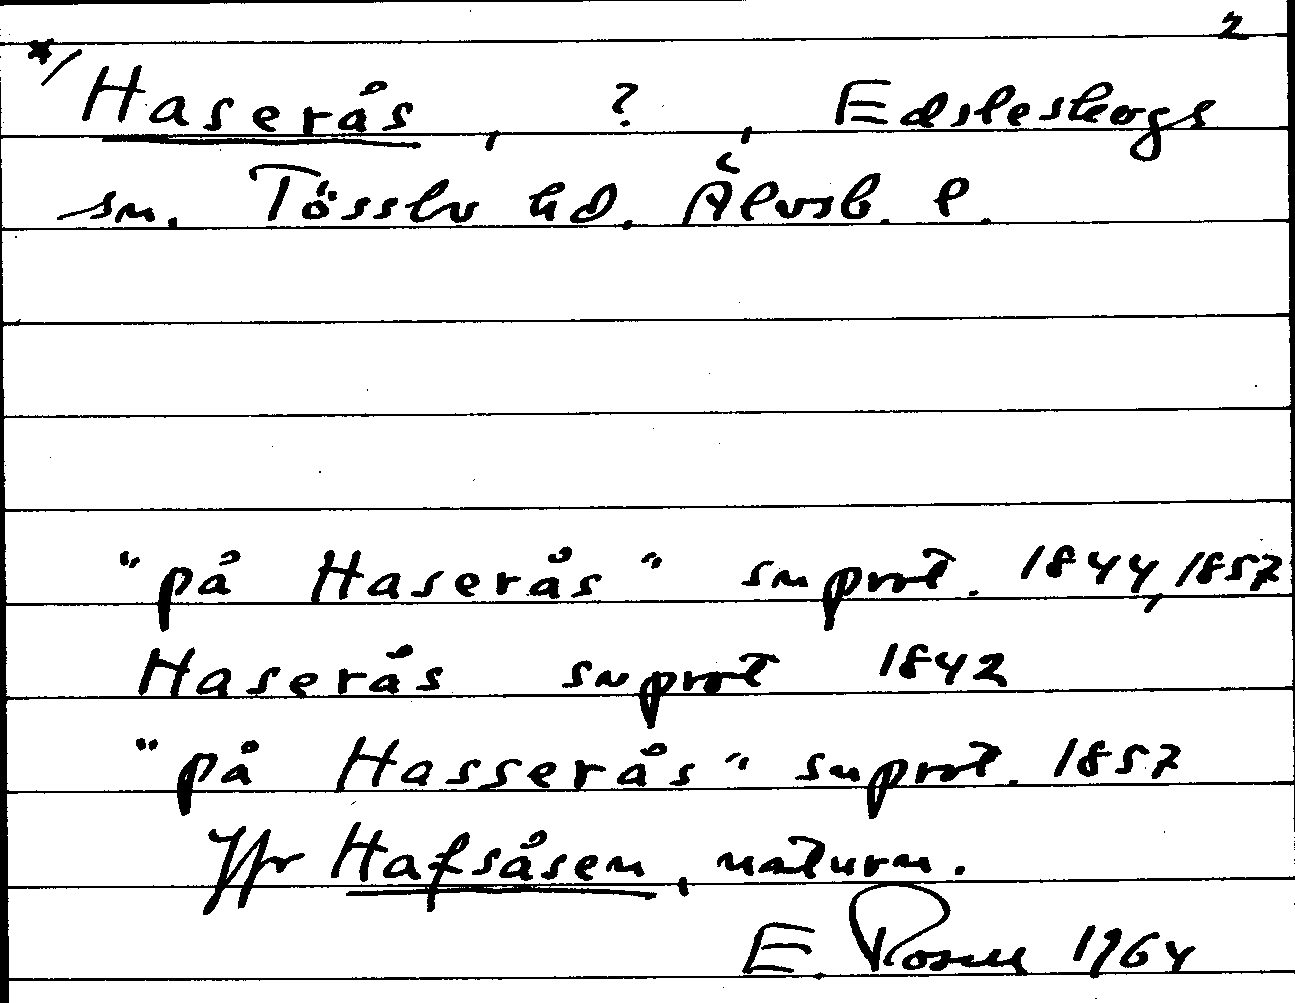 2
*/ Haserås, ?, Edsleskogs
sn. Tössbo hd. Älvsb. l.
"på Haserås" snprot. 1844, 1857
Haserås snprot 1842
"på Hasserås" snprot. 1857
Jfr Hafsåsen, naturn.
E. Rosell 1964